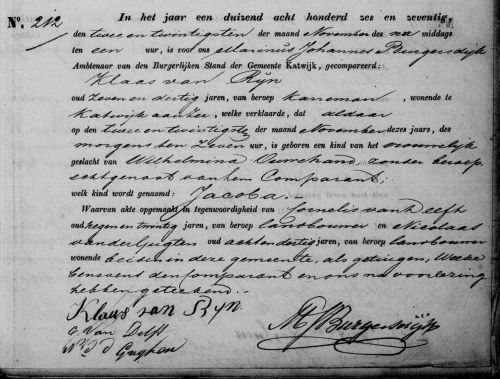 No. 212
In het jaar een duizend acht honderd zes en zeventig,
den twee en twintigsten der maand November des na middags
ten een uur, is voor ons Marinus Johannes Burgersdijk
Ambtenaar van den Burgerlijken Stand der Gemeente Katwijk, gecompareerd:
Klaas van Rijn
oud zeven en dertig jaren, van beroep kareman, wonende te
Katwijk aan Zee, welke verklaarde, dat aldaar
op den twee en twintigste der maand November dezes jaars, des
morgens ten zeven uur, is geboren een kind van het vrouwelijk
geslacht van Wilhelmina Ouwehand, zonder beroep
echtgenoot van hem Comparant,
welk kind wordt genaamd: Jacoba.
Waarvan akte opgemaakt in tegenwoordigheid van Cornelis van Delft
oud negen en twintig jaren, van beroep landbouwer en Nicolaas
van der Gugten oud acht en dertig jaren, van beroep landbouwer
wonende beiden in deze gemeente, als getuigen, welke
benevens den comparant en ons na voorlezing
hebben geteekend.
Klaas van Ryn
C. Van Delft
N. v d Gugten
MJ Burgersdijk